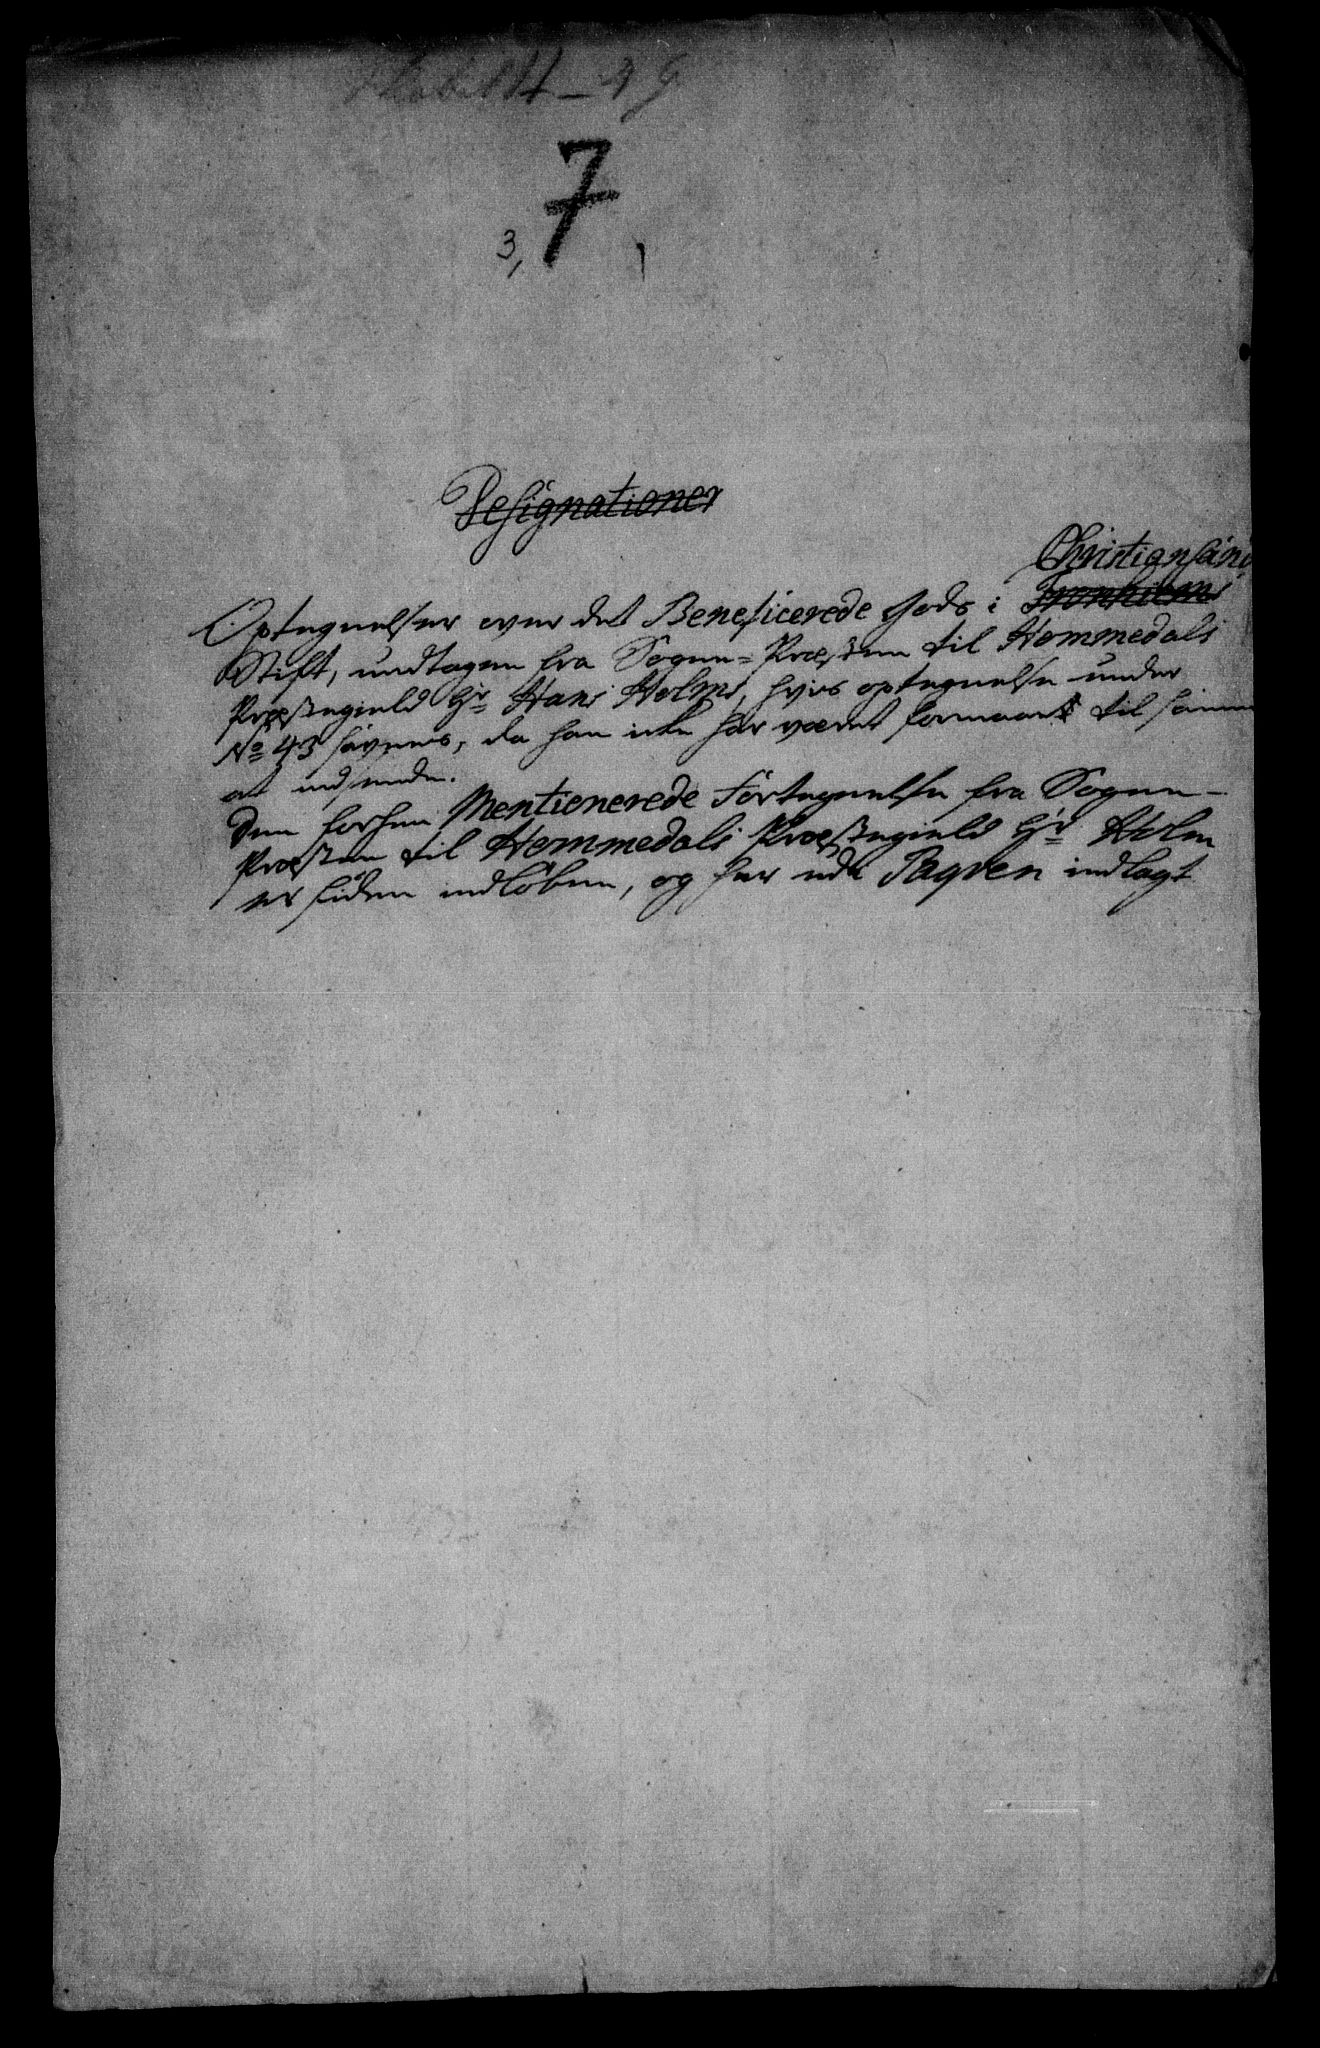 7
3,
Designationer
Christiansand
Optegnelser over det Beneficerede Gods i Tronhiems
Stift, undtagen fra Sogne-Præsten til Hommedals
Præstegield Hr Hans Holms, hvis optegnelse under
No 43 savnes, da han icke har været formaaet til samme
at indsende.
Den forhen Mentionerede Fortegnelse fra Sogne-
Præsten til Hommedals Præstegield Hr Holm
er siden indløben, og her udi Paqven indlagt